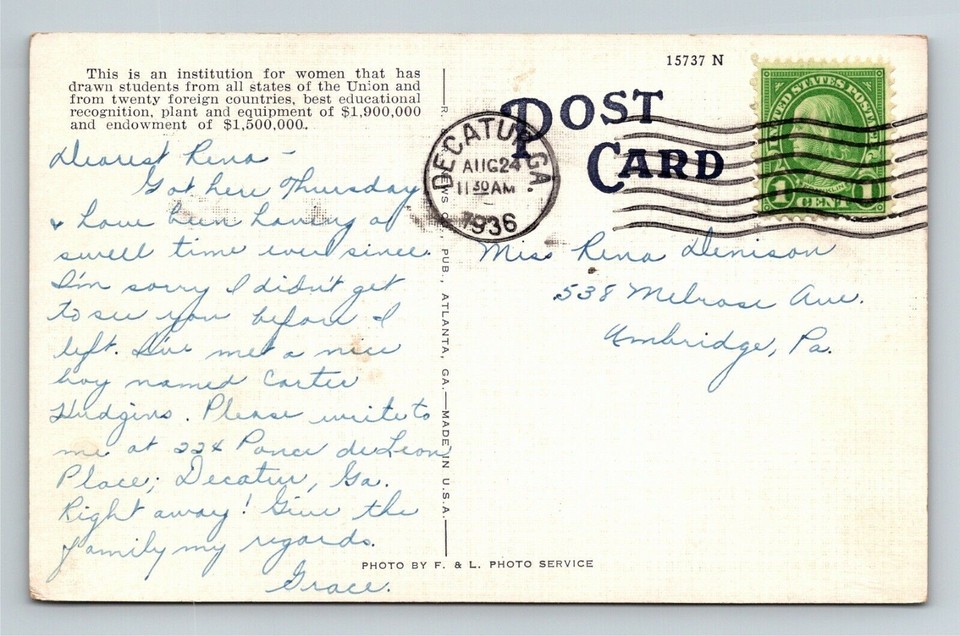 This is an institution for women that has
drawn students from all states of the Union and
from twenty foreign countries, best educational
recognition, plant and equipment of $1,900,000
and endowment of $1,500,000.
Dearest Rena -
Got here Thursday
& have been having a
swell time ever since.
I'm sorry I didn't get
to see you before I
left. I've met a nice
boy named Carter
Hudgins. Please write to
me at 224 Ponce de Leon
Place; Decatur, Ga.
Right away! Give the
family my regards.
Grace.
NEWS CO. PUB., ATLANTA, GA.—MADE IN U.S.A.
15737 N
POST
CARD
DECATUR, GA.
AUG 24
11 30 AM
1936
UNITED STATES POSTAGE
1 CENT 1
Miss Rena Denison
538 Melrose Ave.
Ambridge, Pa.
PHOTO BY F. & L. PHOTO SERVICE